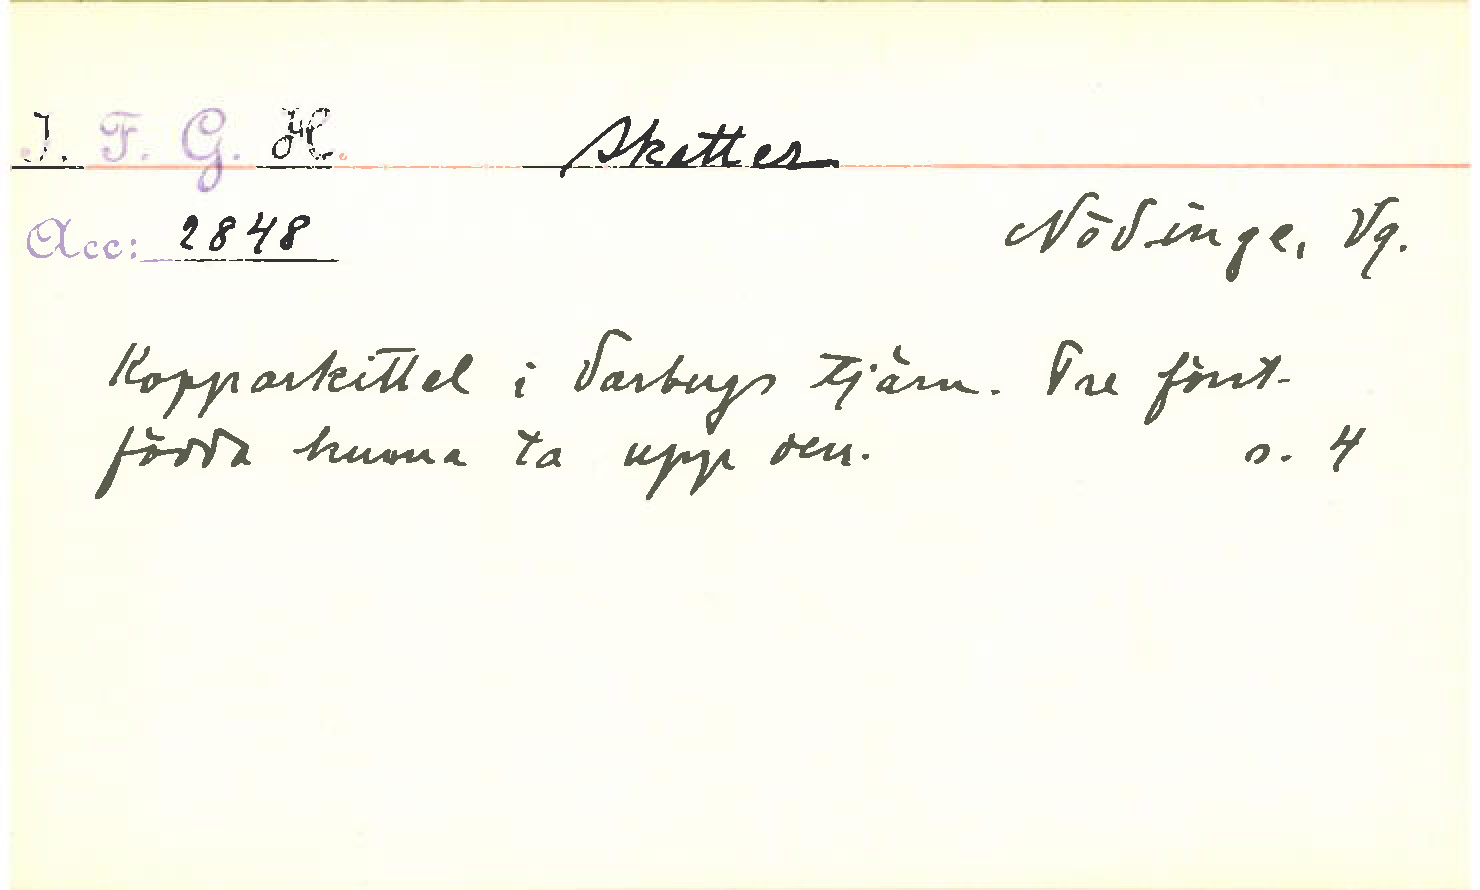 I. F. G. H. Skatter
Acc: 2848 Nödinge, Vg.
Kopparkittel i Varbergs tjärn. Tre först-
födda kunna ta upp den. s. 4